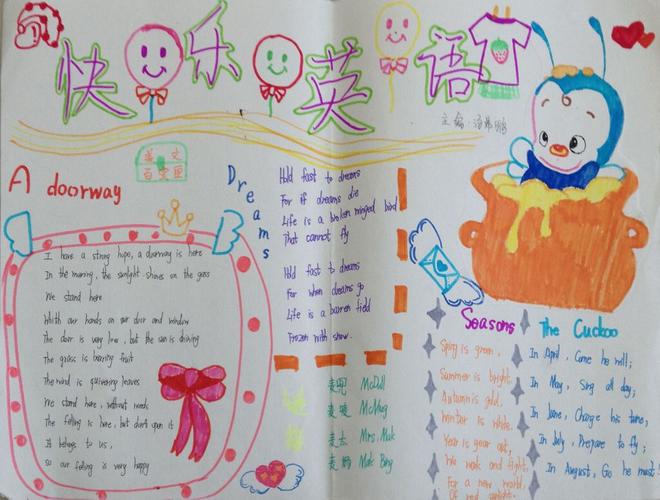 快乐英语
主编：潘
英文
百宝里
A doorway
I have a strong hope, a doorway is here
In the morning, the sunlight shines on the grass
We stand here
With our hands on our door and window
The door is very low, but the sun is shining
The grass is bearing fruit
The wind is quivering leaves
We stand here, without words
The falling is here, but don't open it
It belongs to us,
so our feeling is very happy
Dreams
Hold fast to dreams
For if dreams die
Life is a broken minged bird
That cannot fly
Hold fast to dreams
For when dreams go
Life is a barren field
Frozen with show.
麦兜 McDull
麦唛 McMug
麦太 Mrs. Mak
Mak Bing
Seasons
Spring is green,
Summer is bright,
Autumn is gold,
Winter is white.
Year is year out,
We work and fight,
For a new world,
Of red sunlight.
The Cuckoo
In April, Come he will;
In May, Sing all day;
In June, Change his tune,
In July, Prepare to fly;
In August, Go he must.